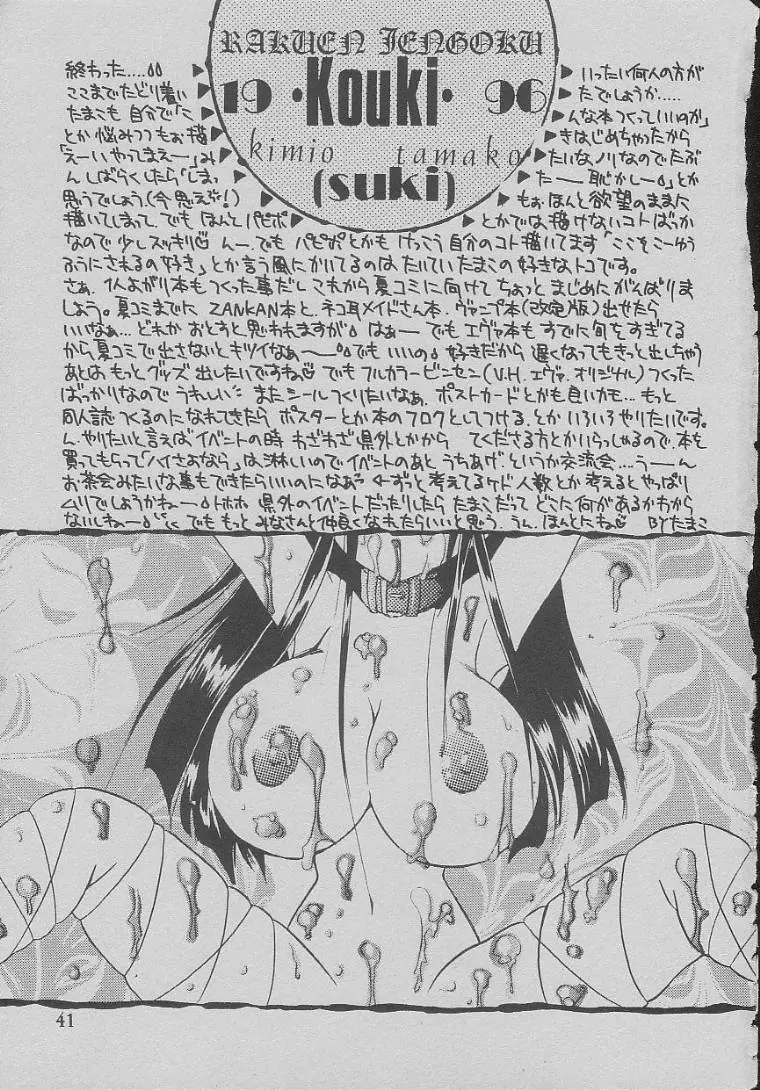 RAKUEN JENGOKU
19 ・Kouki・ 96
kimio tamako
(suki)
終わった....
いったい何人の方が
ここまでたどり着い
たでしょうか.....
たまこも 自分で「こ
んな本つくっていいのか」
とか悩みつつもぉ描
きはじめちゃったから
「えーいやってまえー」み
たいなノリなのでたぶ
ん しばらくしたら「しまっ
たー 恥かしー」とか
思うでしょう(今思えぶ!)
もぉほんと欲望のままに
描いてしまって、でも ほんと パピポ
とかでは描けないコトばっか
なので少しスッキリ♡ んー、でも パピポとかも けっこう自分のコト描いてます「ここをこーゆう
ふうにされるの好き」とか言う風にかいてるのは たいていたまこの好きなトコです。
さぁ、1人よがり本もつくった事だし これから夏コミに向けて ちょっと まじめにがんばりま
しょう。夏コミまでに ZANKAN本と、ネコ耳メイドさん本、ヴァンプ本(改定版)出せたら
いいなぁ... どれか おとすと思われますが はぁー でも エヴァ本も すでに旬をすぎてる
から夏コミで出さないとキツイなぁー でも いいの 好きだから 遅くなってもきっと出しちゃう
あとは もっと グッズ 出したいですね でも フルカラービンセン(V.H. エヴァ. オリジナル)つくった
ばっかりなので うれしい またシールつくりたいなぁ、ポストカードとかも良いカモ... もっと
同人誌 つくるのに なれてきたら ポスターとか本のフロクとしてつける、とか いろいろやりたいです。
ん、やりたいと言えば イベントの時 わざわざ県外とかから てくださる方とかいらっしゃるので、本を
買ってもらって「ハイさよおなら」は、淋しいのでイベントのあと うちあげ、というか交流会....うーん
お茶会みたいな事もできたらいいのになぁ ←ずっと考えてるケド 人数とか考えるとやっぱり
ムリでしょうかねー トホホ 県外のイベントだったりしたら たまこだって どこに何があるかわから
ないしねー でも もっと みなさんと仲良くなれたらいいと思う。うん、ほんとにね♡ BYたまこ
41